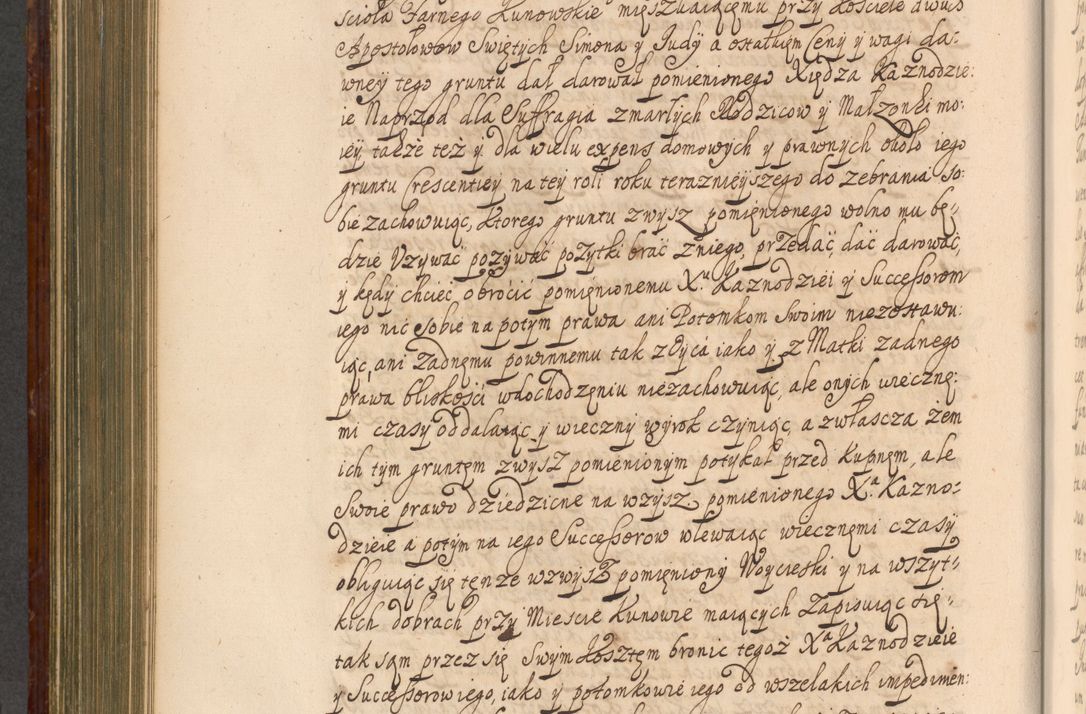 scioła Farnego Kunowskie mięszkaiącemu przy Kosciele dwuch
Apostołowow Swiętych Simona y Judy a ostatkiem Ceny y wagi da-
wney tego gruntu dał darował pomienionego Xiędza Kaznodzie:
ie Naprzod dla Suffragia zmarłych Rodzicow y Małzonki mo:
iey takze tez y dla wielu expens domowych y prawnych około iego
gruntu Crescentiey na tey roli roku teraznieyszego do zebrania so:
bie zachowuiąc, ktorego gruntu zwysz pomięnionego wolno mu bę:
dzie Uzywać pozywać pozytki brać z niego, przedać, dać darować,
y kędy chcieć obroćić pomięnionemu X.ᵃ Kaznodziei y Successorom
iego nic sobie na potym prawa ani Potomkom swoim niezostawu:
iąc, ani Zadnęmu powinnemu tak z Oyca iako y z Matki zadnego
prawa bliskości wdochodzęniu niezachowuiąc, ale onych wiecznę:
mi czasy oddalaiąc y wieczny wyrok czyniąc, a zwłascza żem
ich tym gruntęm zwysz pomienionym potykał przed Kupnęm, ale
Swoie prawo dziedzicne na wzysz pomienionego X.ᵃ Kazno:
dzieie a potym na iego Successorow wlewaiąc wiecznęmi czasy
obliguiąc się tenze wzwysz pomięniony Woycieski y na wszyt:
kich dobrach przy Miescie Kunowie maiących Zapisuiąc się
tak sąm przez się Swym kosztęm bronic tegoż Xᵃ Kaznodzieie
y Successorow iego, iako y potomkowie iego od wszelakich impedimen: